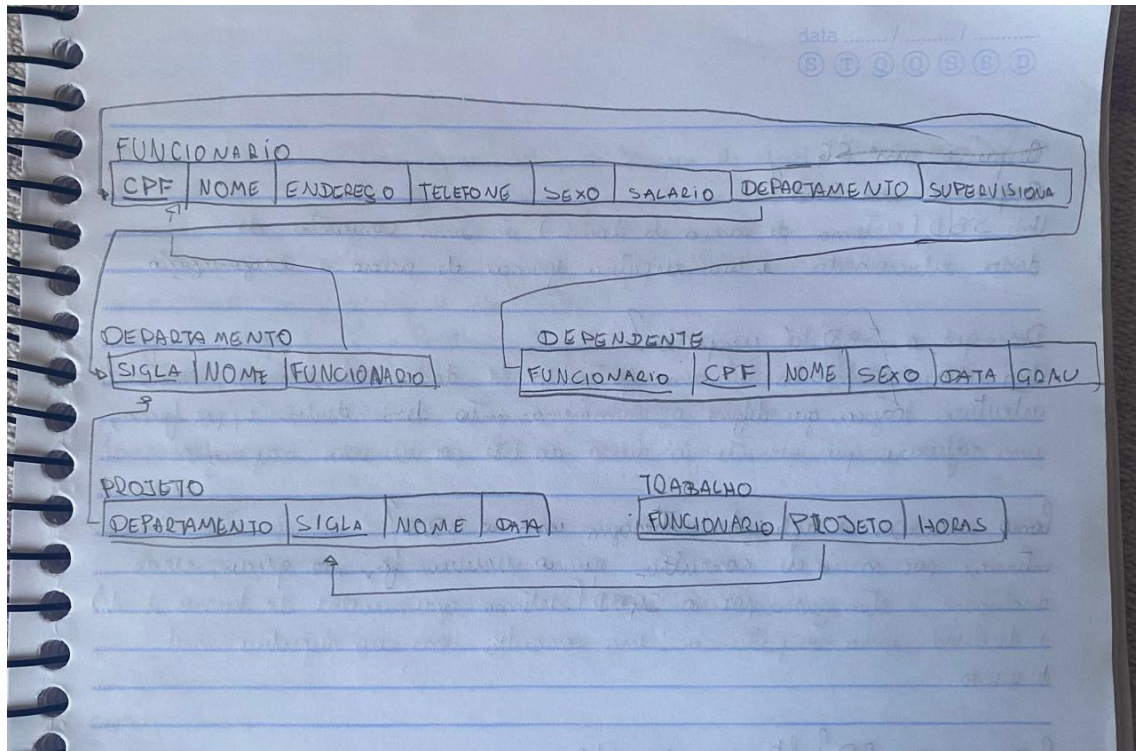 data ......../......../........
S T Q Q S S D
FUNCIONARIO
CPF NOME ENDEREÇO TELEFONE SEXO SALARIO DEPARTAMENTO SUPERVISIONA
DEPARTAMENTO
SIGLA NOME FUNCIONARIO
DEPENDENTE
FUNCIONARIO CPF NOME SEXO DATA GRAU
PROJETO
DEPARTAMENTO SIGLA NOME DATA
TRABALHO
FUNCIONARIO PROJETO HORAS